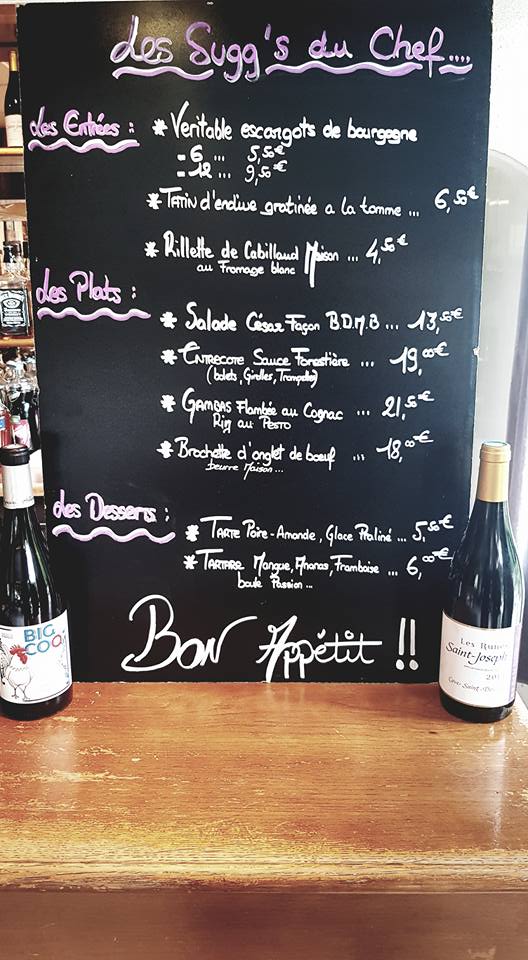 Les Sugg's du Chef....
Les Entrées :
* Veritable escargots de bourgogne
= 6 ... 5,50€
= 12 ... 9,50€
* TATIN d'endive gratinée a la tomme ... 6,50€
* Rillette de Cabillaud Maison ... 4,50€
au Fromage blanc
Les Plats :
* Salade César Façon B.D.M.B ... 13,50€
* ENTRECOTE Sauce Forestière ... 19,00€
(bolets, Girolles, Trompette)
* GAMBAS Flambée au Cognac ... 21,50€
Riz au PESTO
* Brochette d'onglet de boeuf ... 18,00€
beurre Maison...
Les Desserts :
* TARTE Poire-Amande, Glace Praliné ... 5,50€
* TARTARE Mangue, Ananas, Framboise ... 6,00€
boule Passion ...
BON Appétit !!
BIG
COQ
Les Runes
Saint-Joseph